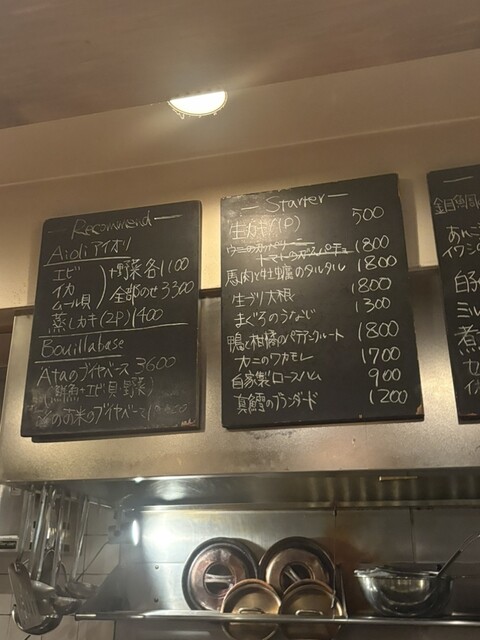 Recommend
Aioli アイオリ
エビ
イカ
ムール貝
+野菜 各1100
全部のせ3300
蒸しカキ(2P) 1400
Bouillabase
Ataのブイヤベース 3600
(鮮魚+エビ 貝 野菜)
のお米のブイヤベース
Starter
生カキ(1P) 500
トマトのガスパチョ 1800
馬肉と牡蠣のタルタル 1800
生ブリ大根 1800
まぐろのうなじ 1300
鴨と柑橘のパテアンクルート 1800
カニのワカモレ 1700
自家製ロースハム 900
真鱈のブランダード 1200
金目鯛
あんこ
イワシ
白子
ミル
煮